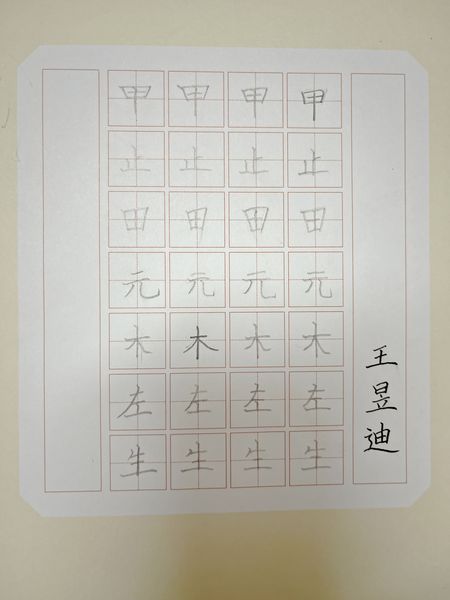 甲甲甲甲
止止止止
田田田田
元元元元
木木木木
左左左左
生生生生
王昱迪